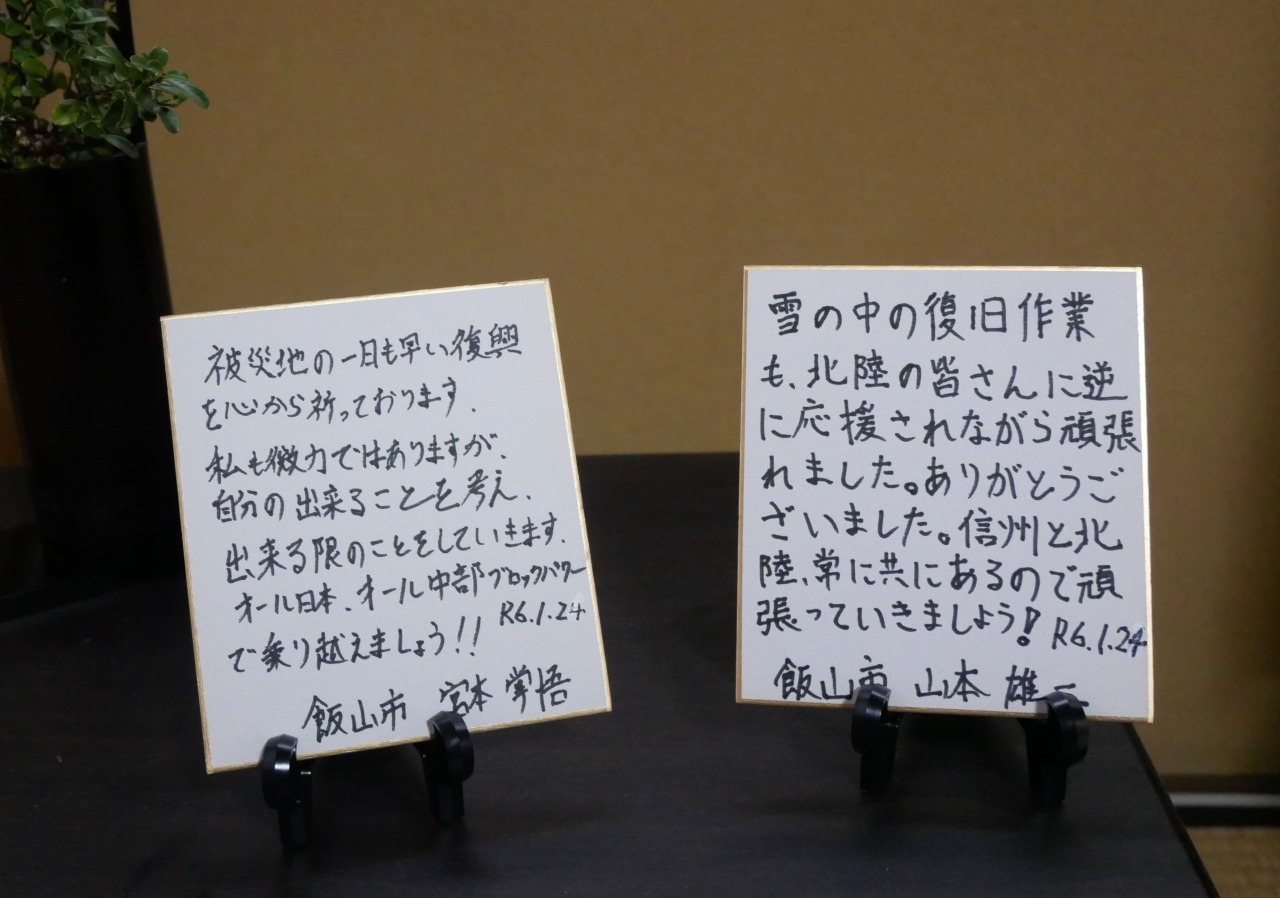 被災地の一日も早い復興
を心から祈っております.
私も微力ではありますが、
自分の出来ることを考え、
出来る限のことをしていきます.
オール日本、オール中部ブロックパワー
で乗り越えましょう!!
R6.1.24
飯山市 宮本 学悟
雪の中の復旧作業
も、北陸の皆さんに逆
に応援されながら頑張
れました。ありがとうご
ざいました。信州と北
陸、常に共にあるので頑
張っていきましょう!
R6.1.24
飯山市 山本 雄二